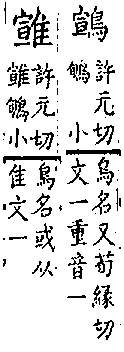 許元切鳥名又荀緣切
小文一重音一
許元切鳥名或从
小隹文一